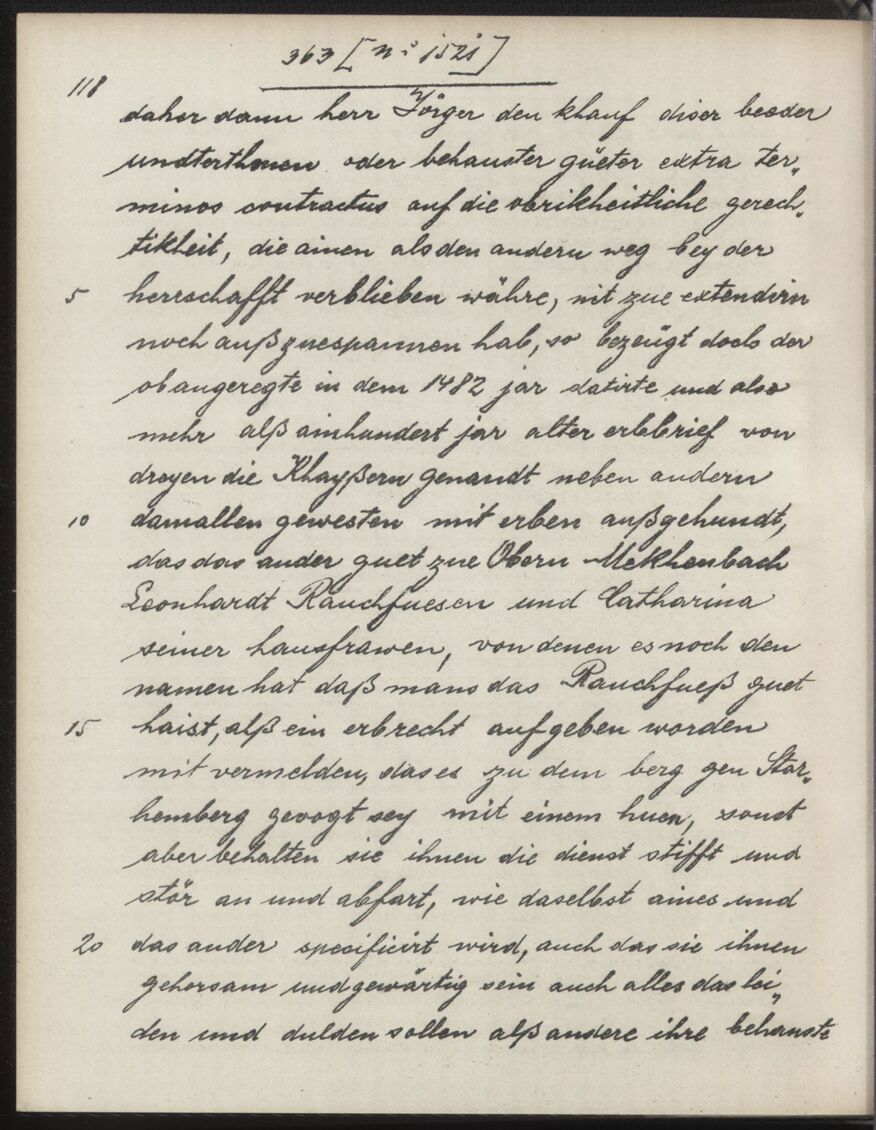 363 [nº 1521]
118
daher dann herr Jörger den khauf diser beeder
undterthonen oder behauster güeter extra ter„
minos contractus auf die obrikheitliche gerech„
tikheit, die ainen als den andern weg bey der
5 herrschafft verblieben währe, nit zue extendirn
noch außzuespannen hab, so bezeügt doch der
obangeregte in dem 1482 jar datirte und also
mehr alß ainhundert jar alter erbbrief von
dreyen die Khayßern genandt neben andern
10 damallen gewesten mit erben außgehundt,
das das ander guet zue Obern Mekhenbach
Leonhardt Rauchfuesen und Catharina
seiner hausfrawen, von denen es noch den
namen hat daß mans das Rauchfueß guet
15 haist, alß ein erbrecht aufgeben worden
mit vermelden, das es zu dem berg gen Star„
hemberg gevogt sey mit einem huen, sonst
aber behalten sie ihnen die dienst stifft und
stör an und abfart, wie daselbst aines und
20 das ander specificirt wird, auch das sie ihnen
gehorsam und gewärtig sein auch alles das lei„
den und dulden sollen alß andere ihre behauste